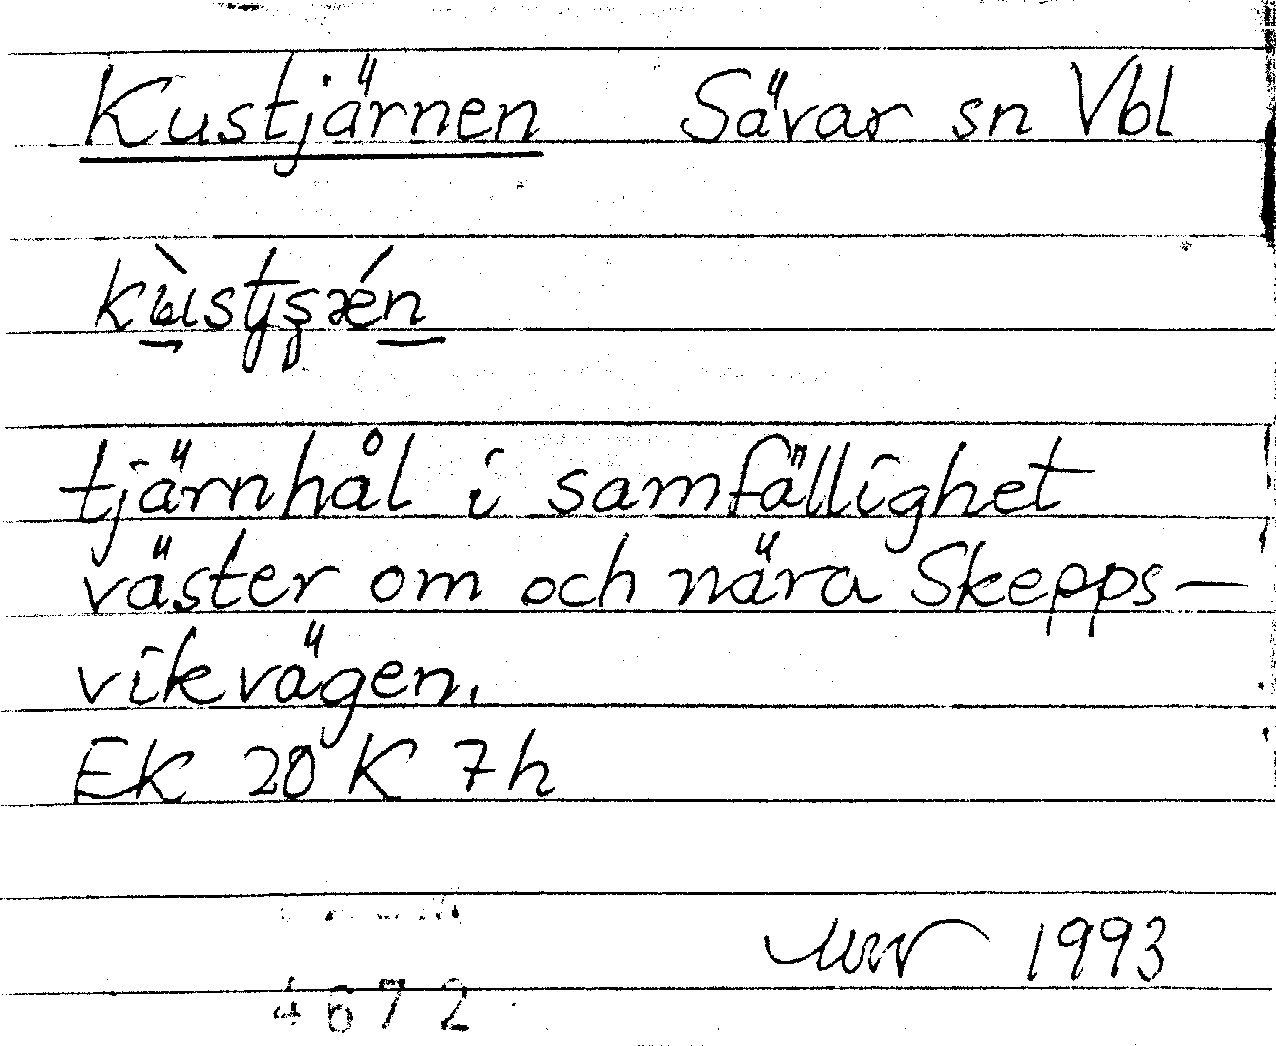 Kustjärnen Sävar sn Vbl
tjärnhål i samfällighet
väster om och nära Skepps-
vikvägen.
EK 20 K 7h
1993
4672